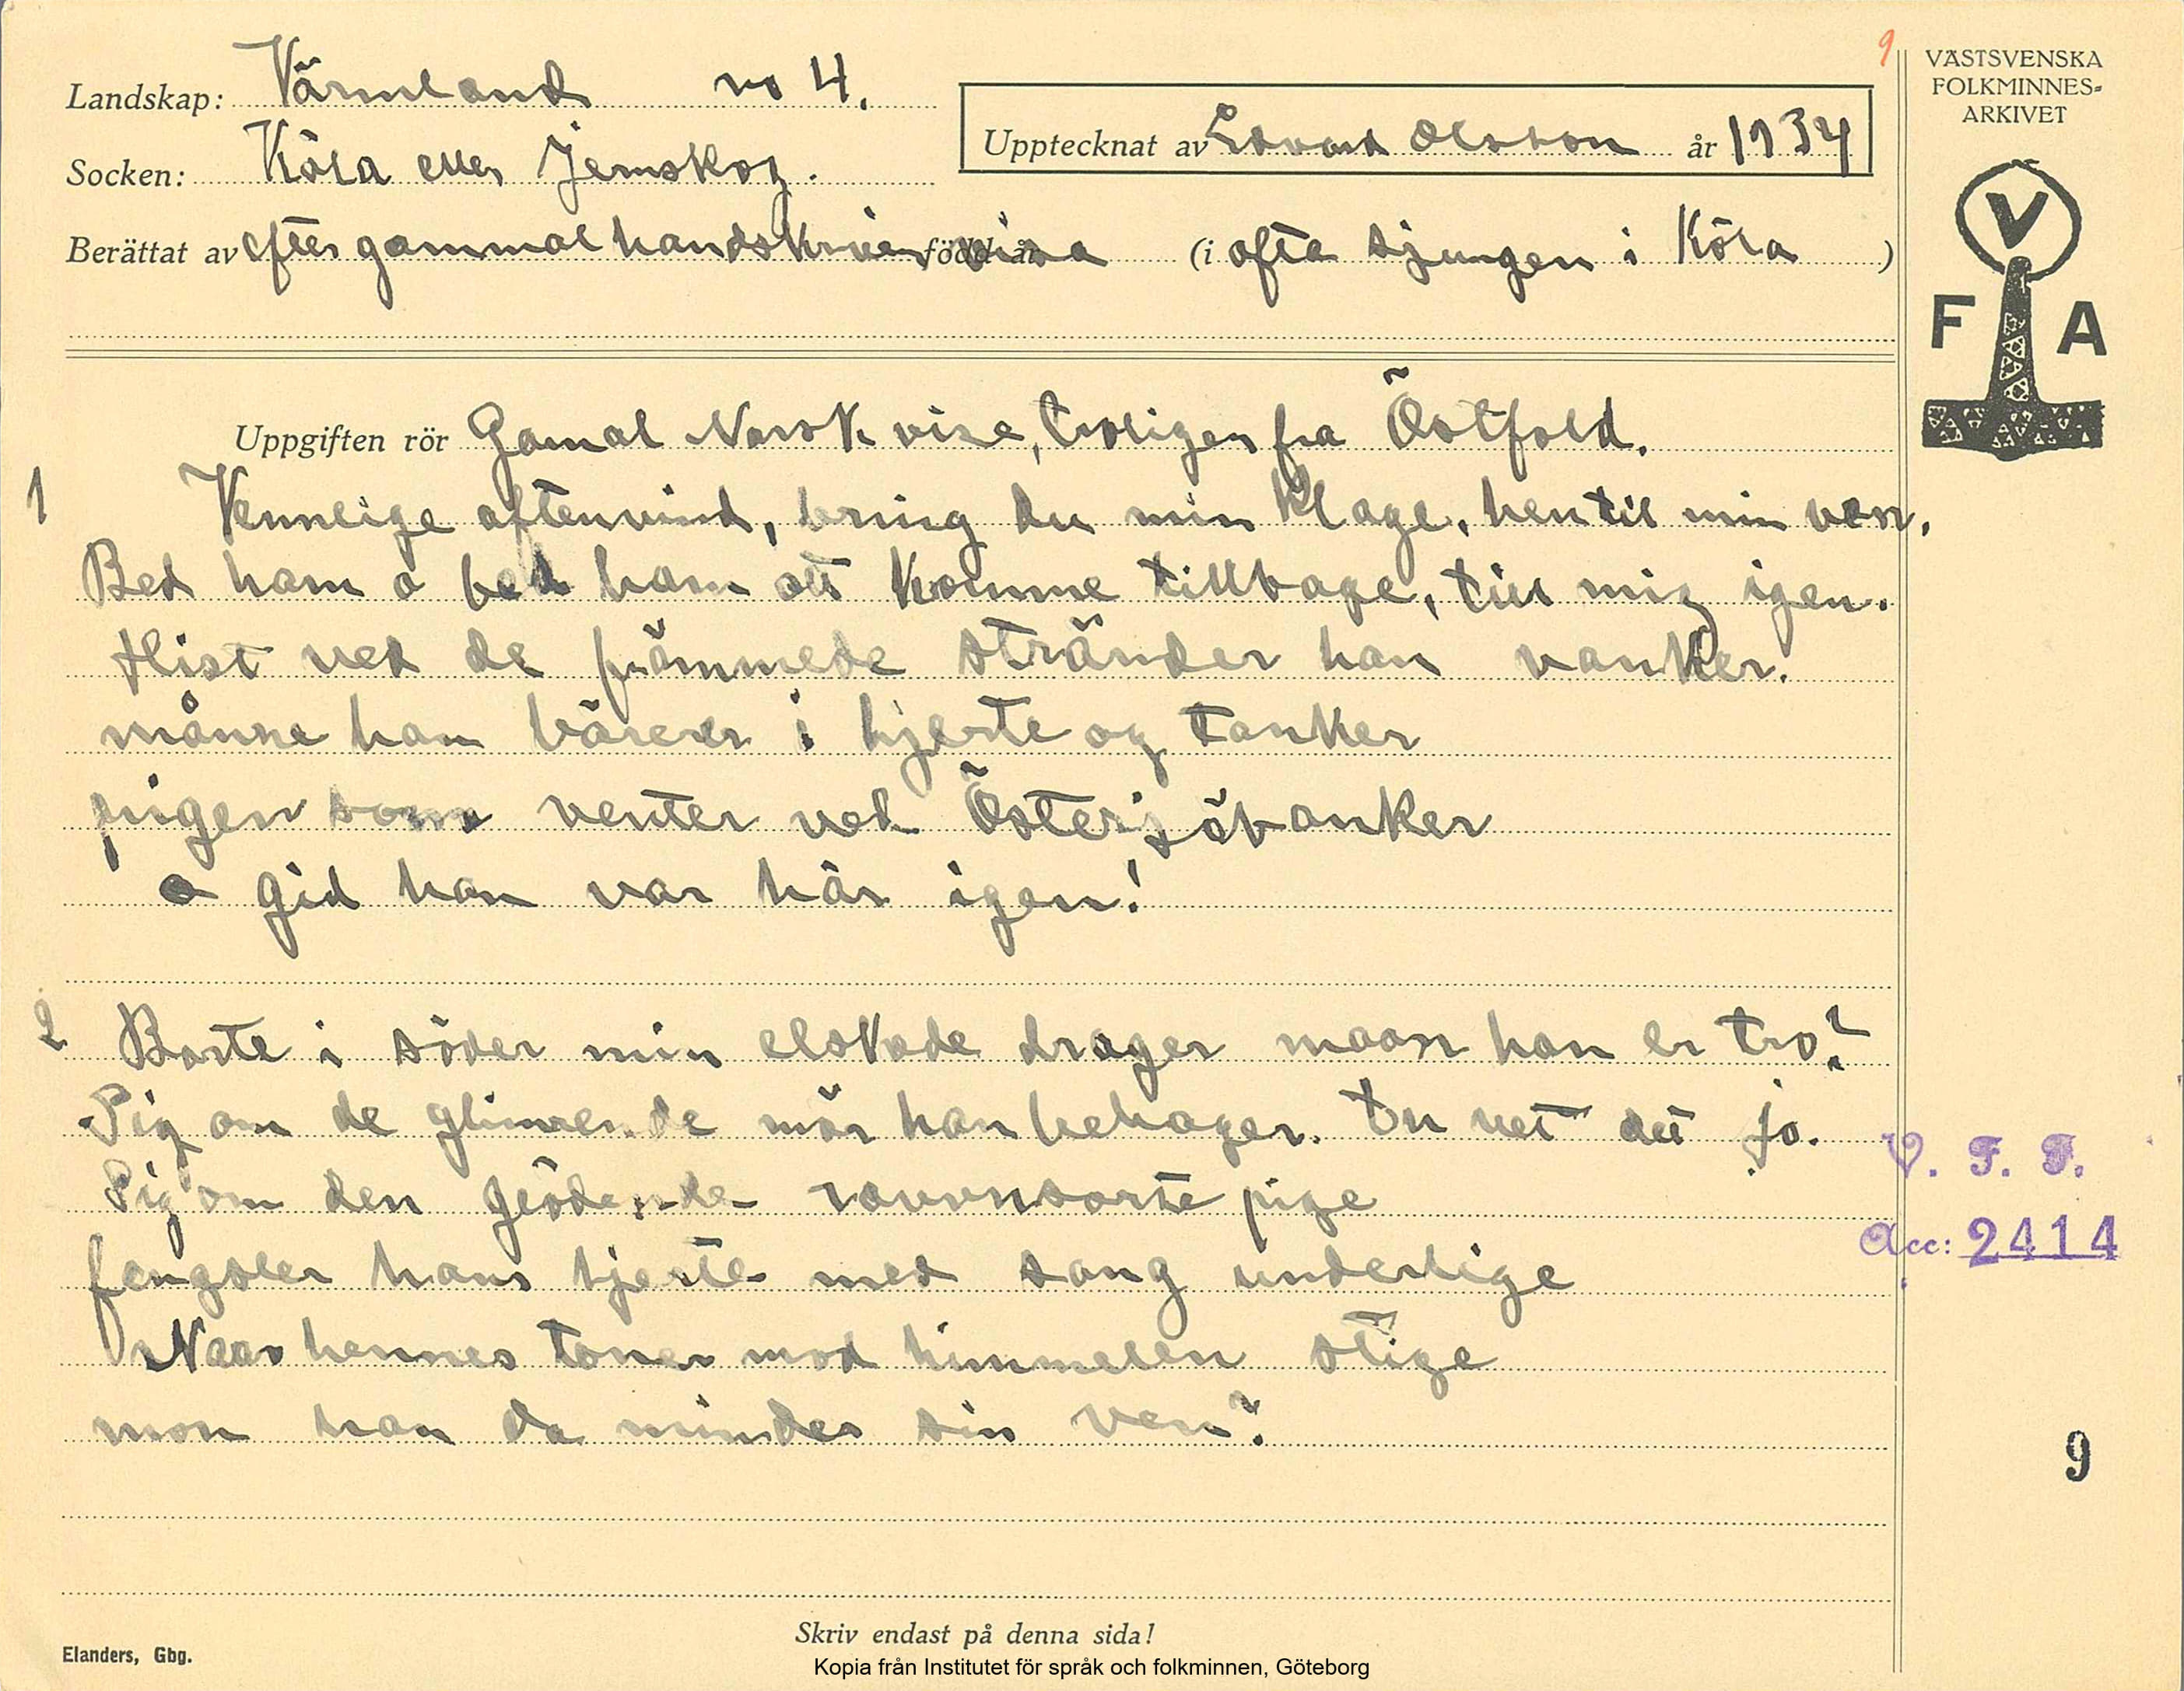 9
VÄSTSVENSKA
FOLKMINNES-
ARKIVET
Landskap: Värmland no 4.
Upptecknat av Edvard Olsson år 1934
Socken: Köla eller Jernskog.
Berättat av efter gammal handskriven född år visa (i ofta sjungen i Köla )
V
F A
Uppgiften rör Gamal Norsk vise, troligen fra Östfold.
1 Vennlige aftenvind, bring du min klage, hen til min ven,
Bed ham o bed ham att komme tillbage, till mig igen.
Hist ved de främmede stränder han vanker.
månne han bärer i hjerte og tanker
pigen som venter ved Östersjöbanker
o gid han var här igen!
2 Borte i söder min elskade drager maan han er tro?
Sig om de glimrende mör han behager. Du vet det jo.
Sig om den glödende ravnsorte pige
fengsler hans hjerte med sang underlige
Naar hennes toner mod himmelen stige
mon han da mindes sin ven?
V. F. F.
Acc: 2414
9
Skriv endast på denna sida!
Elanders, Gbg.
Kopia från Institutet för språk och folkminnen, Göteborg